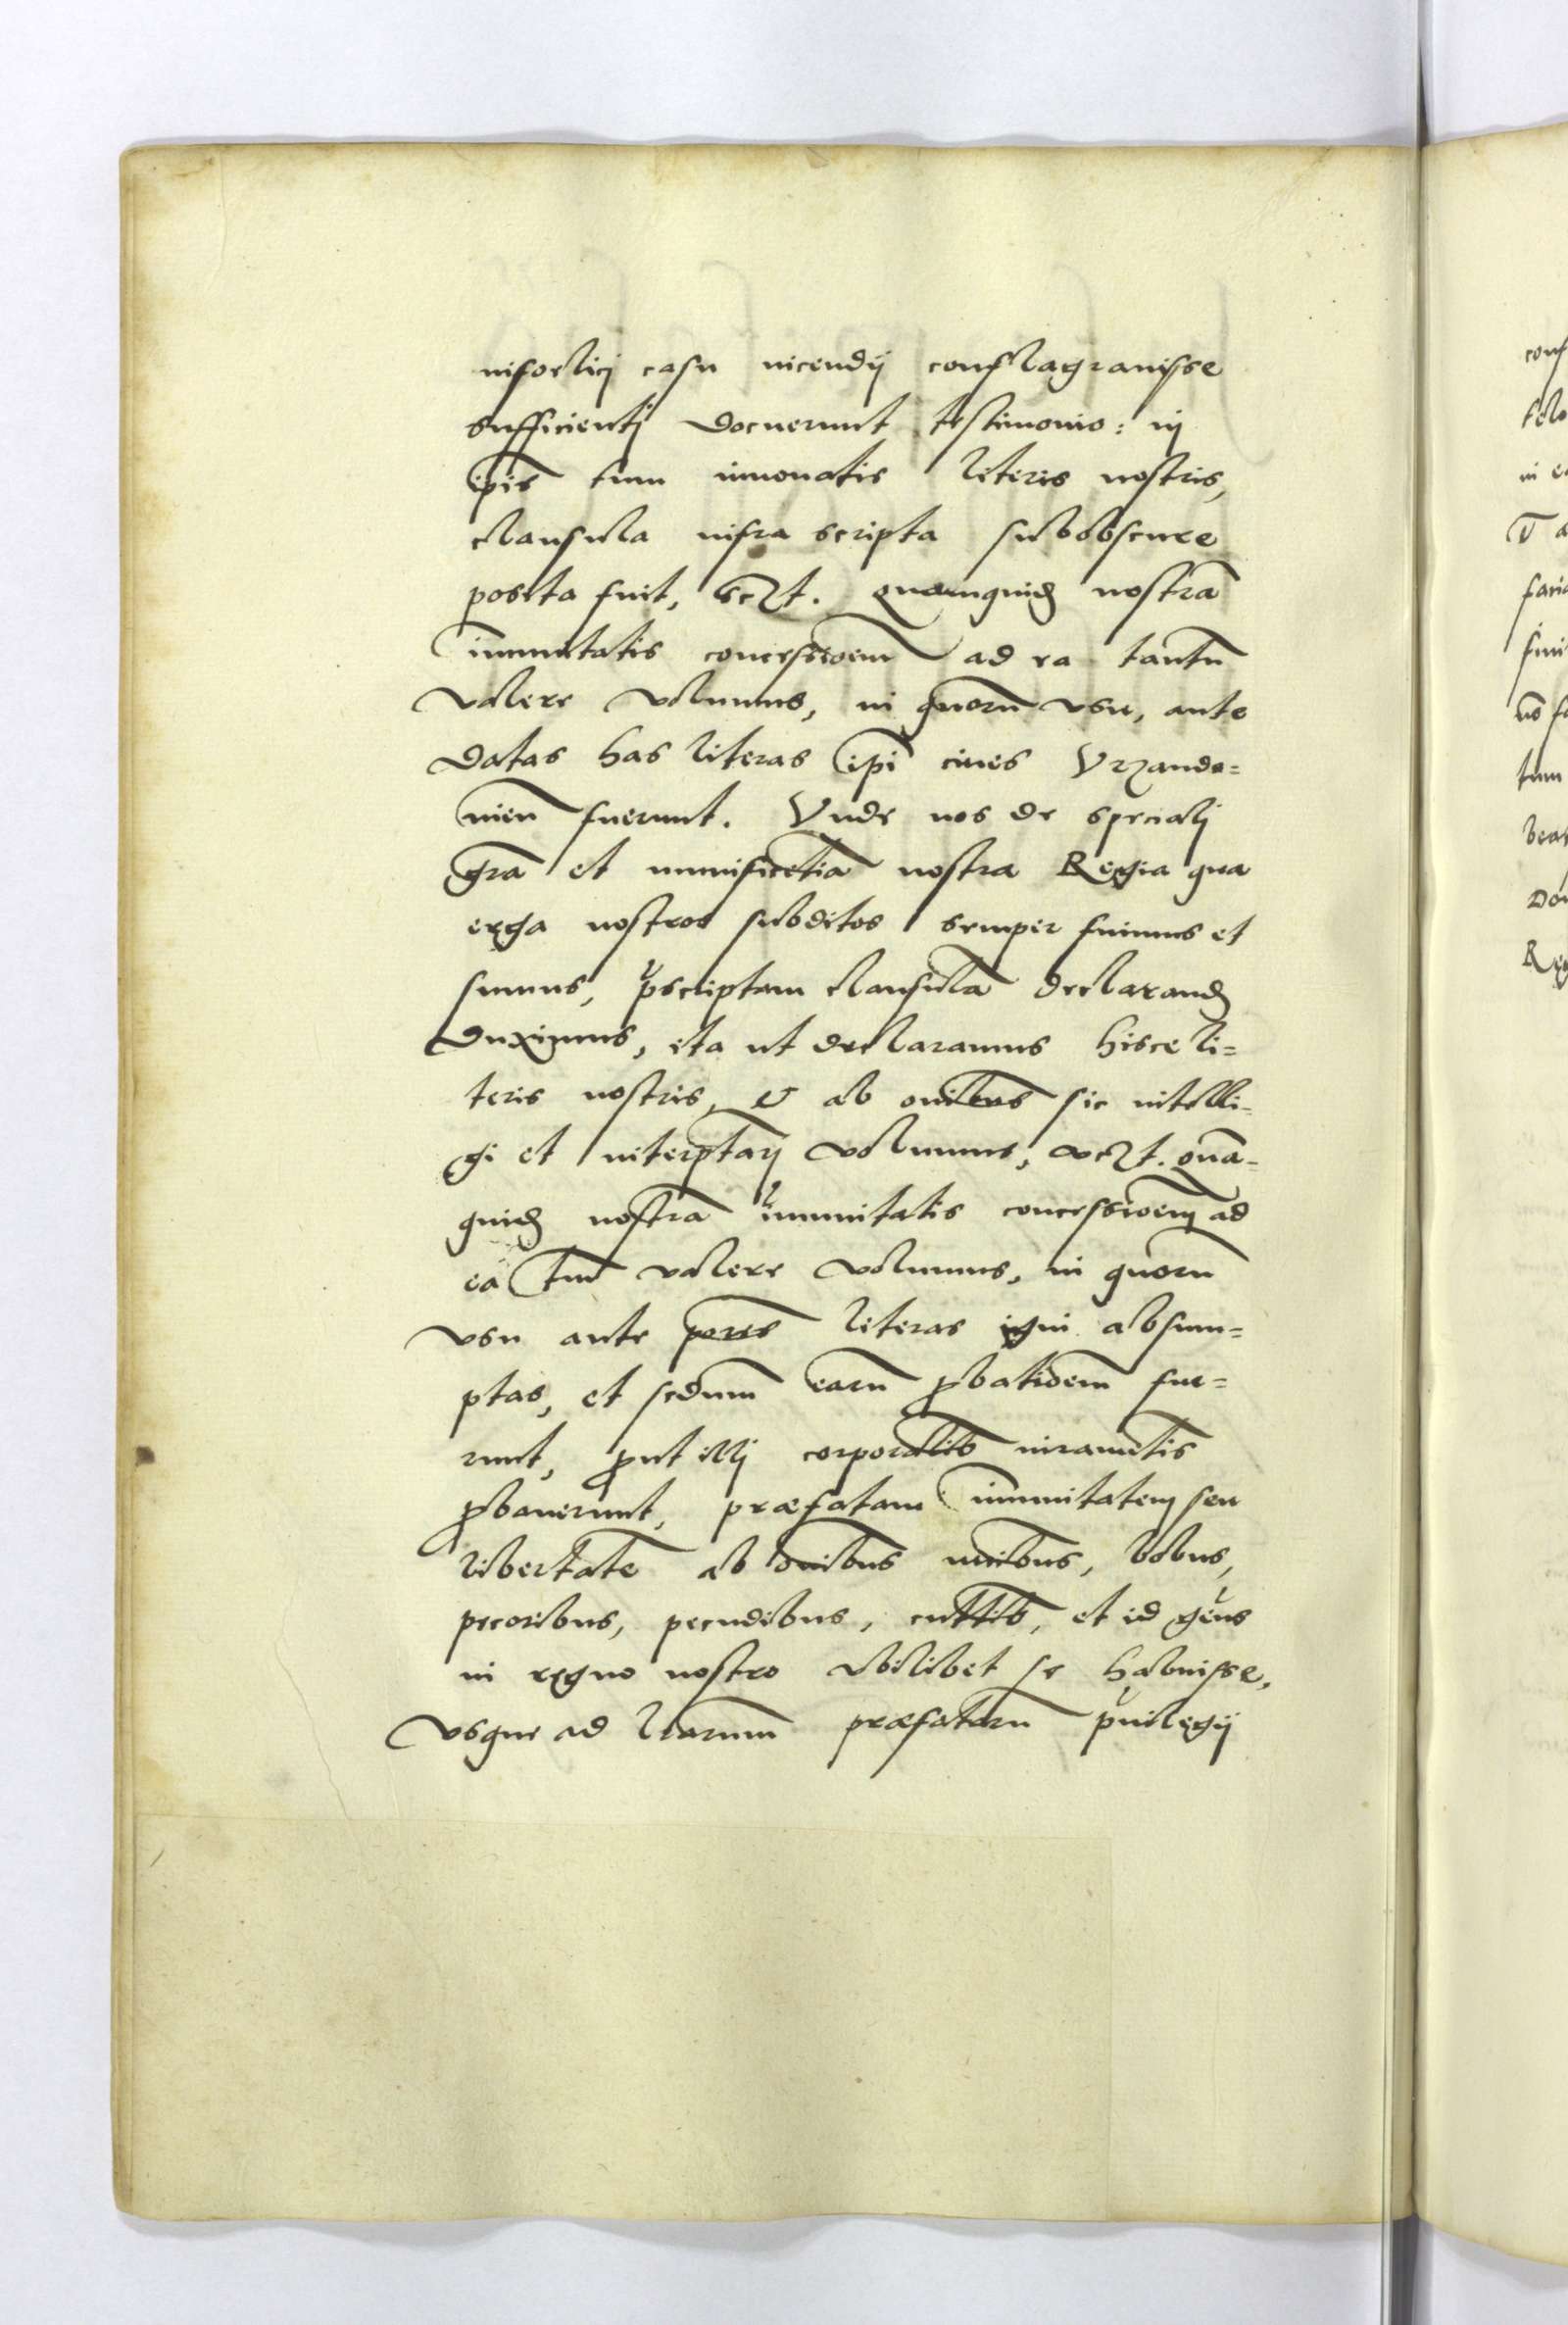 infoelicj casu incendij conflagrauisse
sufficientj docuerunt testimonio: in
ip̄is tum innouatis literis nostris,
clausula infra scripta subobscure
posita fuit, sczt. quamquid nostrā
īmunitatis concessioem̄ ad ea tantū
valere volumus, in quorū vsu, ante
datas has literas ip̄i ciues Vrzando=
nien̄ fuerunt. Vnde nos de specialj
gr̄a et munificētia nostra Regia qua
erga nostros subditos semper fuimus et
sumus, p̄scriptam clausulā declarand
duximus, ita ut declaramus hisce li=
teris nostris, & ab oībus sic intelli=
gi et interp̄tarj volumus, vczt. quā=
quid nostrā īmunitatis concessioem̄ ad
ea tm̄ valere volumus, in quorū
vsu ante pores literas igni absum=
ptas, et sedum̄ earū ꝓbatioem̄ fue=
runt, ꝓut illj corporalib iuramētis
ꝓbauerunt, præfatam īmunitatem seu
libertatē ab oībus mcibus, bobus,
pecoribus, pecudibus, cuttib, et id geūs
in regno nostro vbilibet se habuisse,
vsque ad lrarum̄ præfatarū pͥuilegij